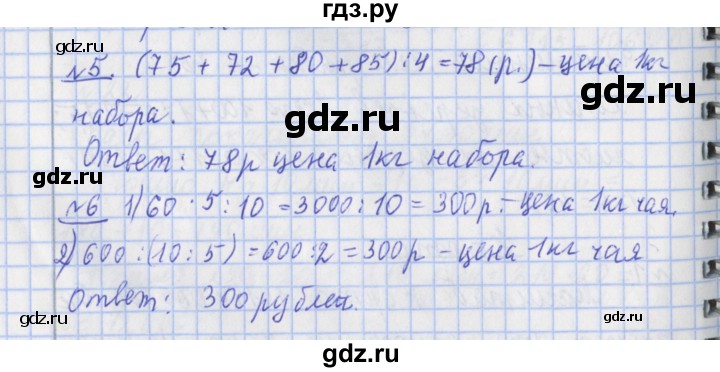 гдз.ру
№5. (75 + 72 + 80 + 85) : 4 = 78 (р.) – цена 1кг
gdz.ru
набора.
gdz.ru
Ответ: 78р цена 1кг набора.
gdz.ru
№6 1) 60 · 5 : 10 = 3000 : 10 = 300р. – цена 1кг чая.
2) 600 : (10 : 5) = 600 : 2 = 300р – цена 1кг чая
gdz.ru gdz.ru
Ответ: 300 рублей.
gdz.ru